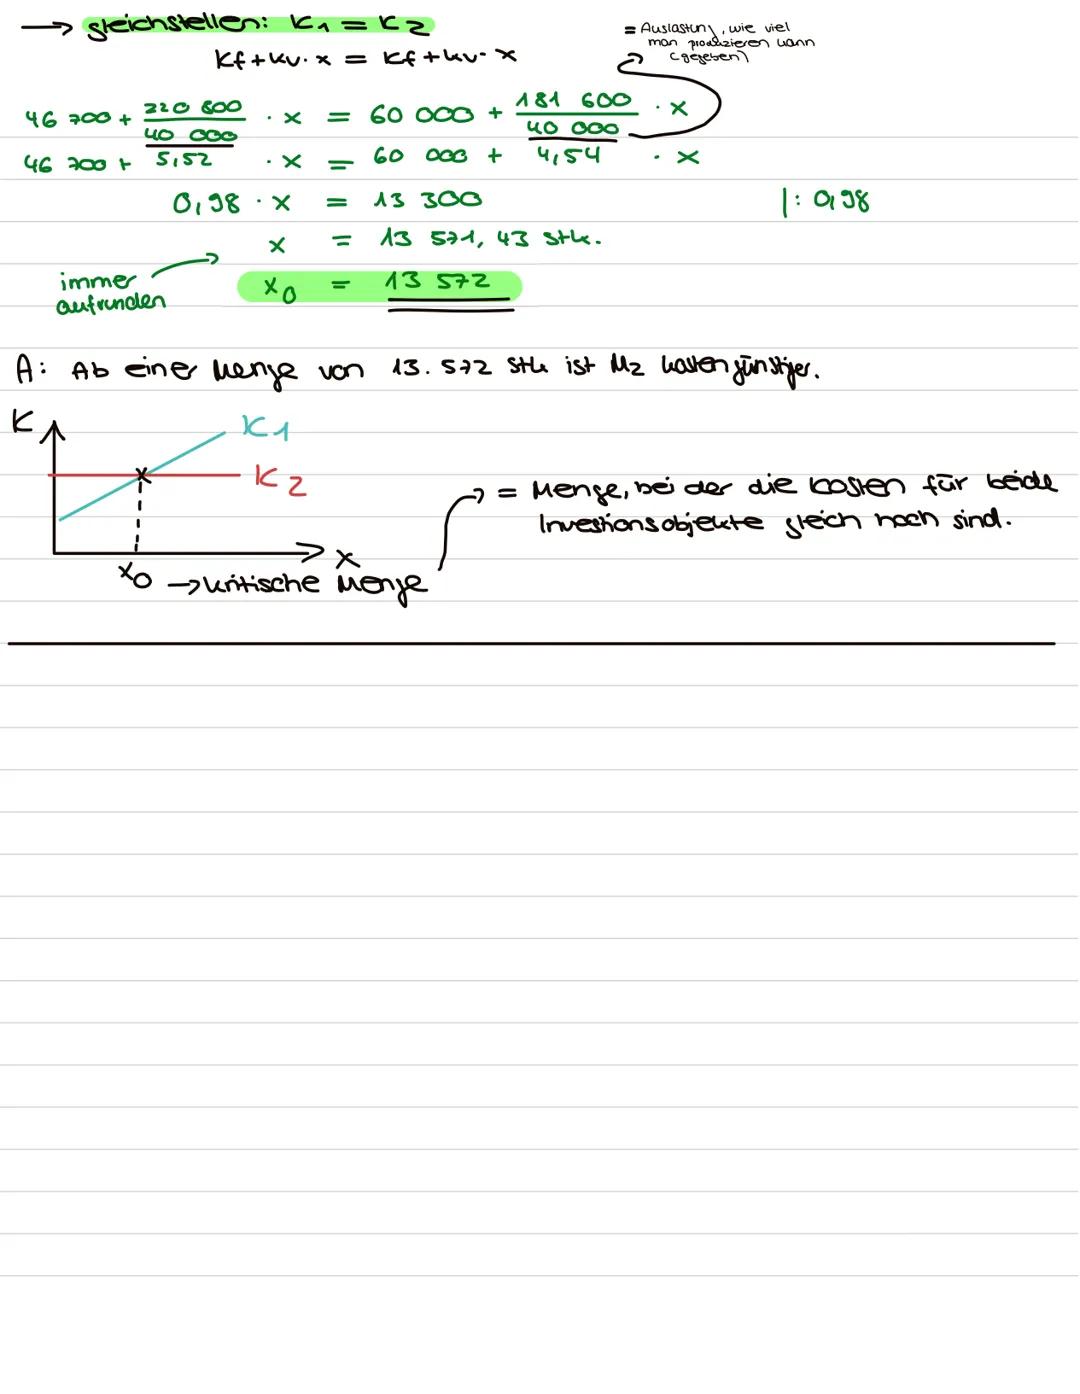 → gleichstellen: K1 = K2
Kf + kv · x = Kf + kv · x
= Auslastung, wie viel
man produzieren kann
(gegeben)
46 700 + 220 800 / 40 000 · x = 60 000 + 181 600 / 40 000 · x
46 700 + 5,52 · x = 60 000 + 4,54 · x
0,98 · x = 13 300 |: 0,98
x = 13 571,43 Stk.
immer
aufrunden
x0 = 13 572
A: Ab einer Menge von 13.572 Stk ist M2 kostengünstiger.
K
K1
K2
x
x0 → kritische Menge
= Menge, bei der die Kosten für beide
Investionsobjekte gleich hoch sind.